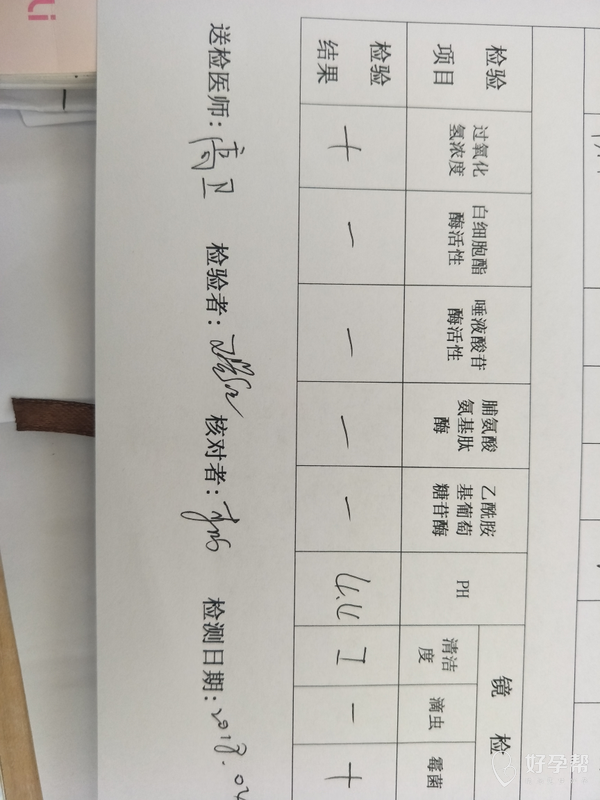 检验
项目
过氧化
氢浓度
白细胞酯
酶活性
唾液酸苷
酶活性
脯氨酸
氨基肽
酶
乙酰胺
基葡萄
糖苷酶
PH
镜 检
清洁
度
滴虫
霉菌
检验
结果
+
—
—
—
—
4.4
I
—
+
送检医师: 高卫 检验者: 核对者: 检测日期: 2018.04
好孕帮